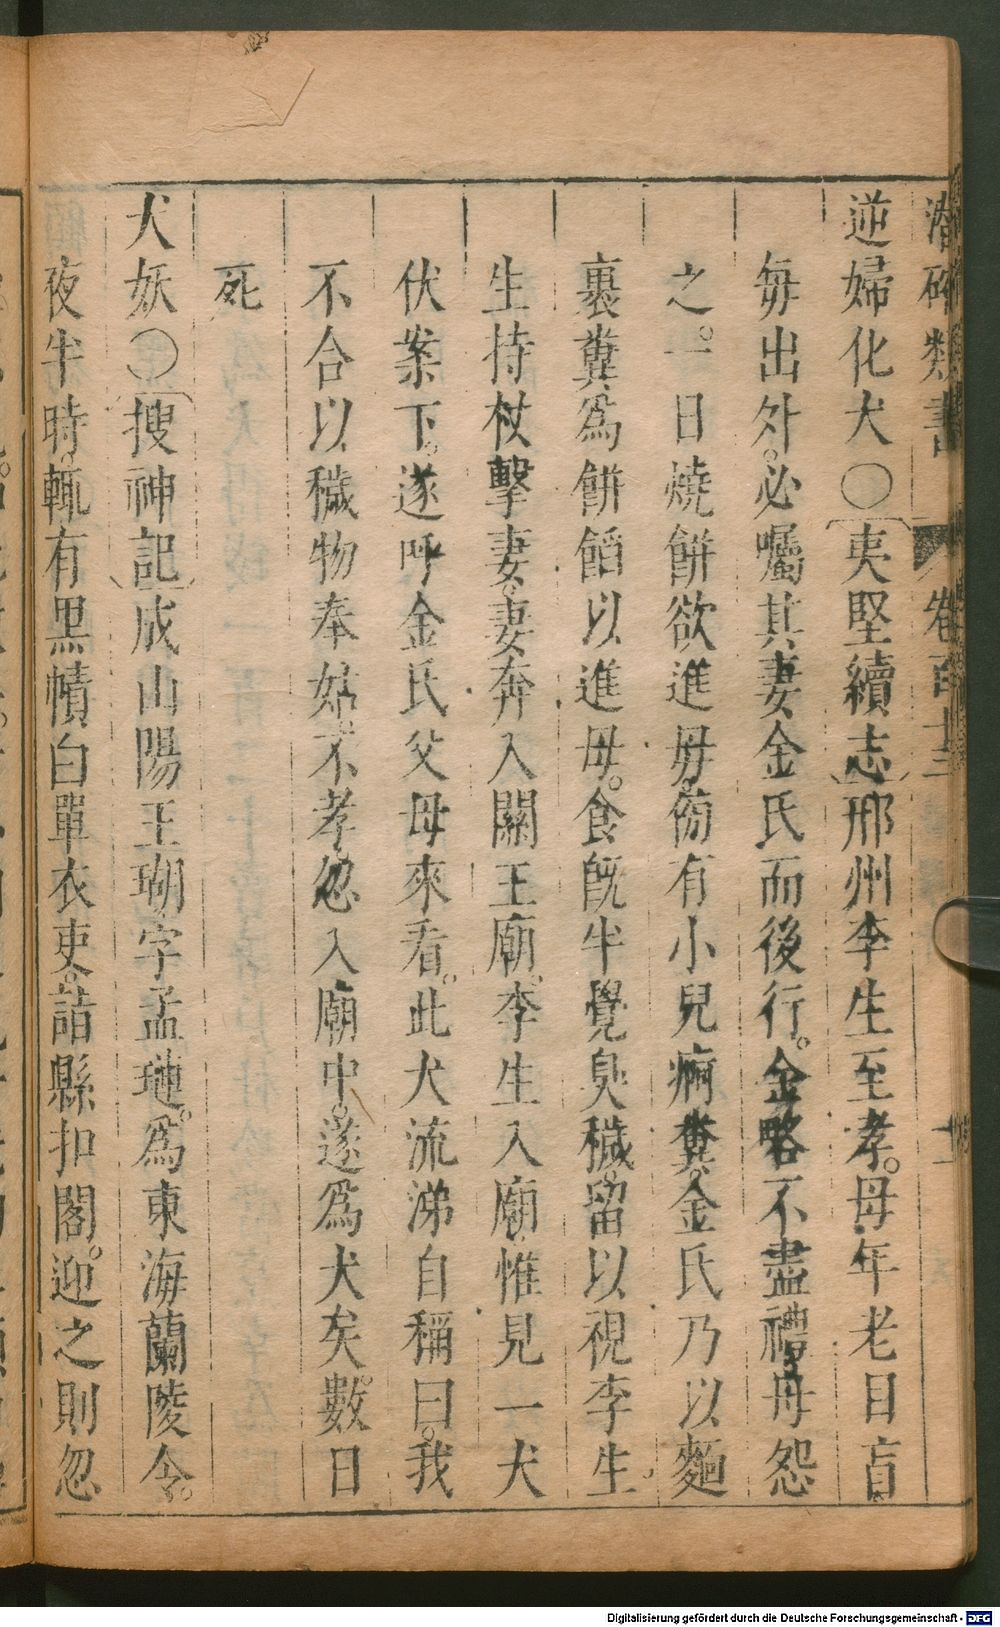 潛確類書 卷百十三
逆婦化犬○夷堅續志邢州李生至孝。母年老目盲。
每出外。必囑其妻金氏而後行。金略不盡禮。母怨
之。一日燒餅欲進母。傍有小兒痾糞。金氏乃以麵
裹糞為餅餡以進母。食旣半覺臭穢。留以視李生。
生持杖擊妻。妻奔入關王廟。李生入廟惟見一犬
伏案下。遂呼金氏父母來看。此犬流涕自稱曰。我
不合以穢物奉姑。不孝忽入廟中。遂為犬矣。數日
死
犬妖○搜神記成山陽王瑚字孟璉。為東海蘭陵令。
夜半時。輒有黑幘白單衣吏。詣縣扣閣。迎之則忽
Digitalisierung gefördert durch die Deutsche Forschungsgemeinschaft - DFG